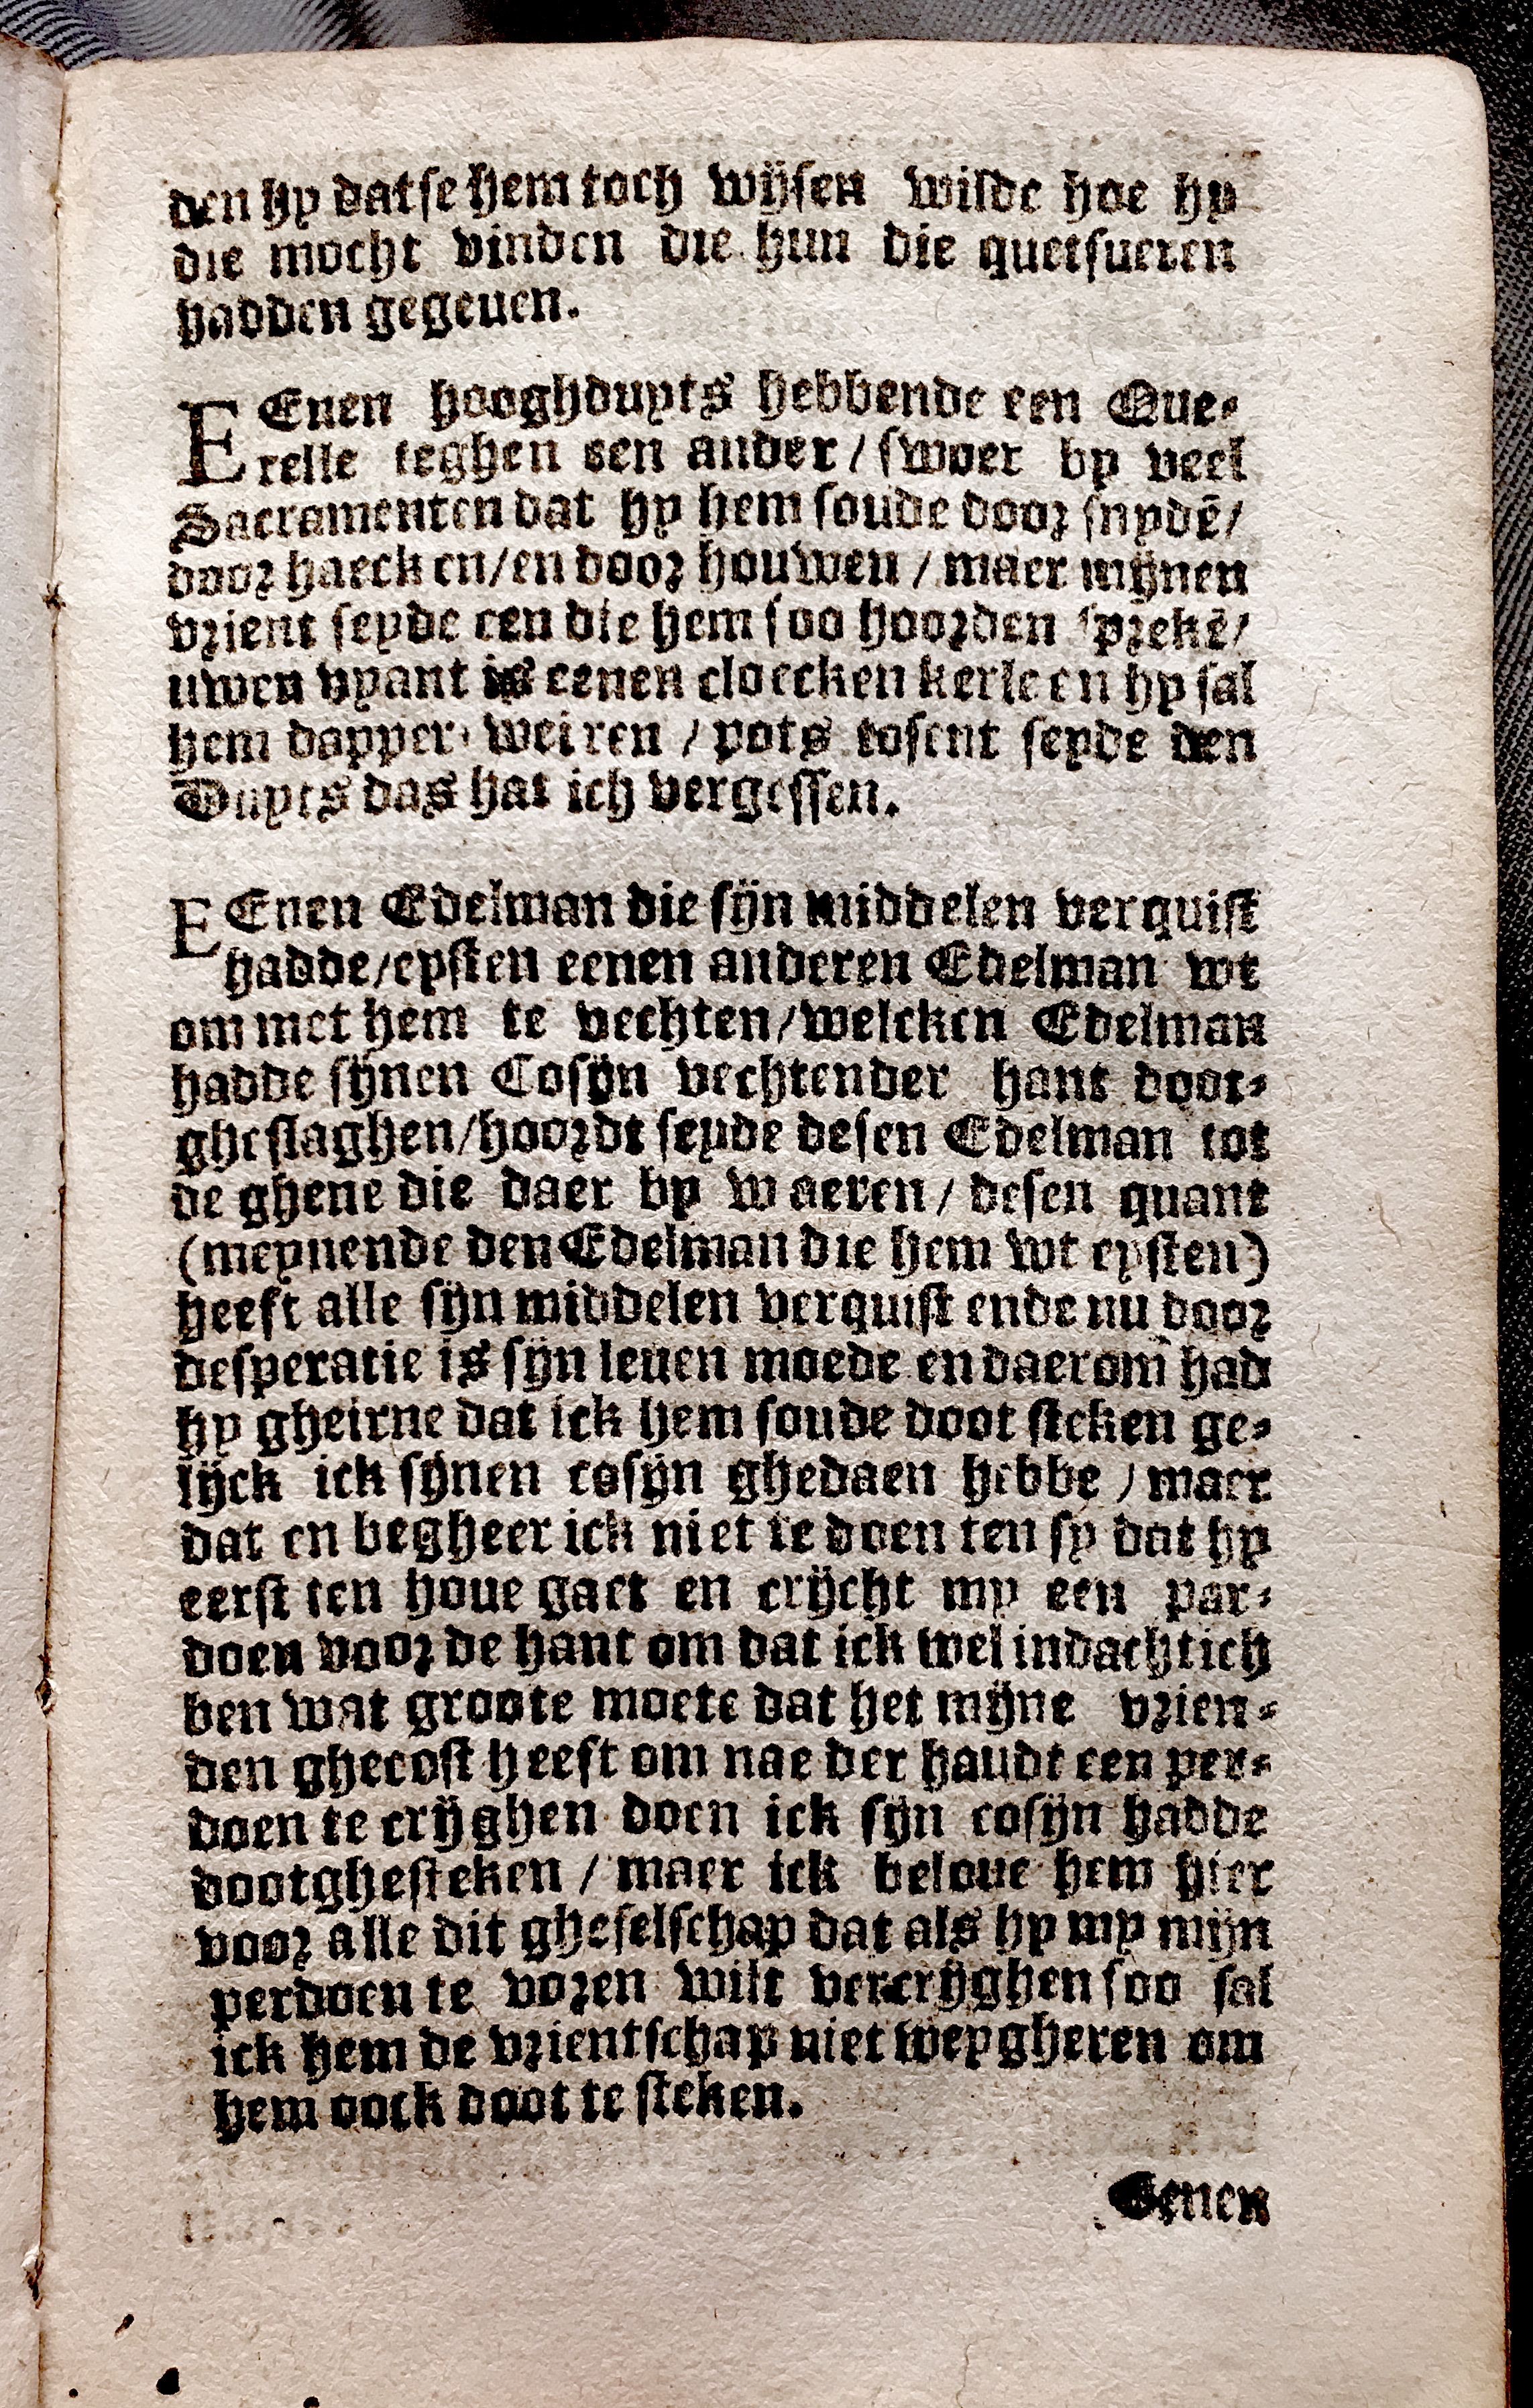 den hy datse hem toch wijsen wilde hoe hy
die mocht vinden die hun die quetsueren
hadden gegeuen.
EEnen hooghduyts hebbende een Que-
relle teghen een ander / swoer by veel
Sacramenten dat hy hem soude door snydē /
door haecken / en door houwen / maer mijnen
vrient seyde een die hem soo hoorden sprekē /
uwen vyant is eenen cloecken kerle en hy sal
hem dapper weiren / pots tosent seyde den
Duyts das hat ich vergessen.
EEnen Edelman die sijn middelen verquist
hadde / eysten eenen anderen Edelman wt
om met hem te vechten / welcken Edelman
hadde sijnen Cosijn vechtender hant doot-
gheslaghen / hoordt seyde desen Edelman tot
de ghene die daer by waeren / desen quant
(meynende den Edelman die hem wt eysten)
heeft alle sijn middelen verquist ende nu door
desperatie is sijn leuen moede en daerom had
hy gheirne dat ick hem soude doot steken ge-
lijck ick sijnen cosijn ghedaen hebbe / maer
dat en begheer ick niet te doen ten sy dat hy
eerst ten houe gaet en crijcht my een par-
doen voor de hant om dat ick wel indachtich
ben wat groote moete dat het mijne vrien-
den ghecost heeft om nae der haudt een per-
doen te crijghen doen ick sijn cosijn hadde
dootghesteken / maer ick beloue hem hier
voor alle dit gheselschap dat als hy my mijn
perdoen te voren wilt vercrijghen soo sal
ick hem de vrientschap niet weygheren om
hem oock doot te steken.
Eenen